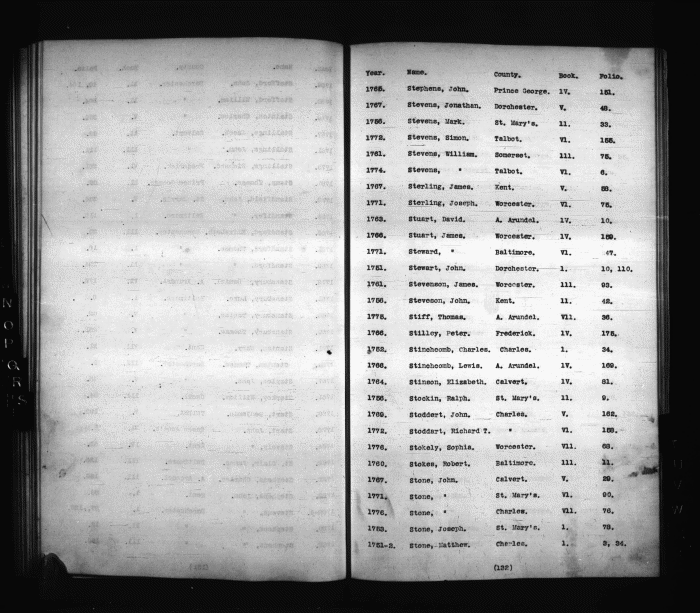 Year. Name. County. Book. Folio.
1765. Stephens, John. Prince George. 1V. 151.
1767. Stevens, Jonathan. Dorchester. V. 48.
1756. Stevens, Mark. St. Mary's. 11. 33.
1772. Stevens, Simon. Talbot. V1. 155.
1761. Stevens, William. Somerset. 111. 75.
1774. Stevens, " Talbot. V1. 6.
1767. Sterling, James. Kent. V.
1771. Sterling, Joseph. Worcester. V1. 75.
1763. Stuart, David. A. Arundel. 1V. 10.
1766. Stuart, James. Worcester. 1V. 189.
1771. Steward, " Baltimore. V1. 47.
1751. Stewart, John. Dorchester. 1. 10, 110.
1761. Stevenson, James. Worcester. 111. 93.
1756. Stevenon, John. Kent. 11. 42.
1775. Stiff, Thomas. A. Arundel. V11. 36.
1766. Stilley, Peter. Frederick. 1V. 175.
1752. Stinchcomb, Charles. Charles. 1. 34.
1766. Stinchcomb, Lewis. A. Arundel. 1V. 169.
1764. Stinson, Elizabeth. Calvert. 1V. 81.
Stockin, Ralph. St. Mary's. 11. 9.
1769. Stoddert, John. Charles. V. 162.
1772. Stoddart, Richard T. " V1.
1776. Stokely, Sophia. Worcester. V11.
1760. Stokes, Robert. Baltimore. 111. 11.
1767. Stone, John. Calvert. V. 29.
1771. Stone, " St. Mary's. V1. 90.
1776. Stone, " Charles. V11. 76.
Stone, Joseph. St. Mary's. 1. 78.
1751-2. Stone, Matthew. Charles. 1. 3, 34.
(132)